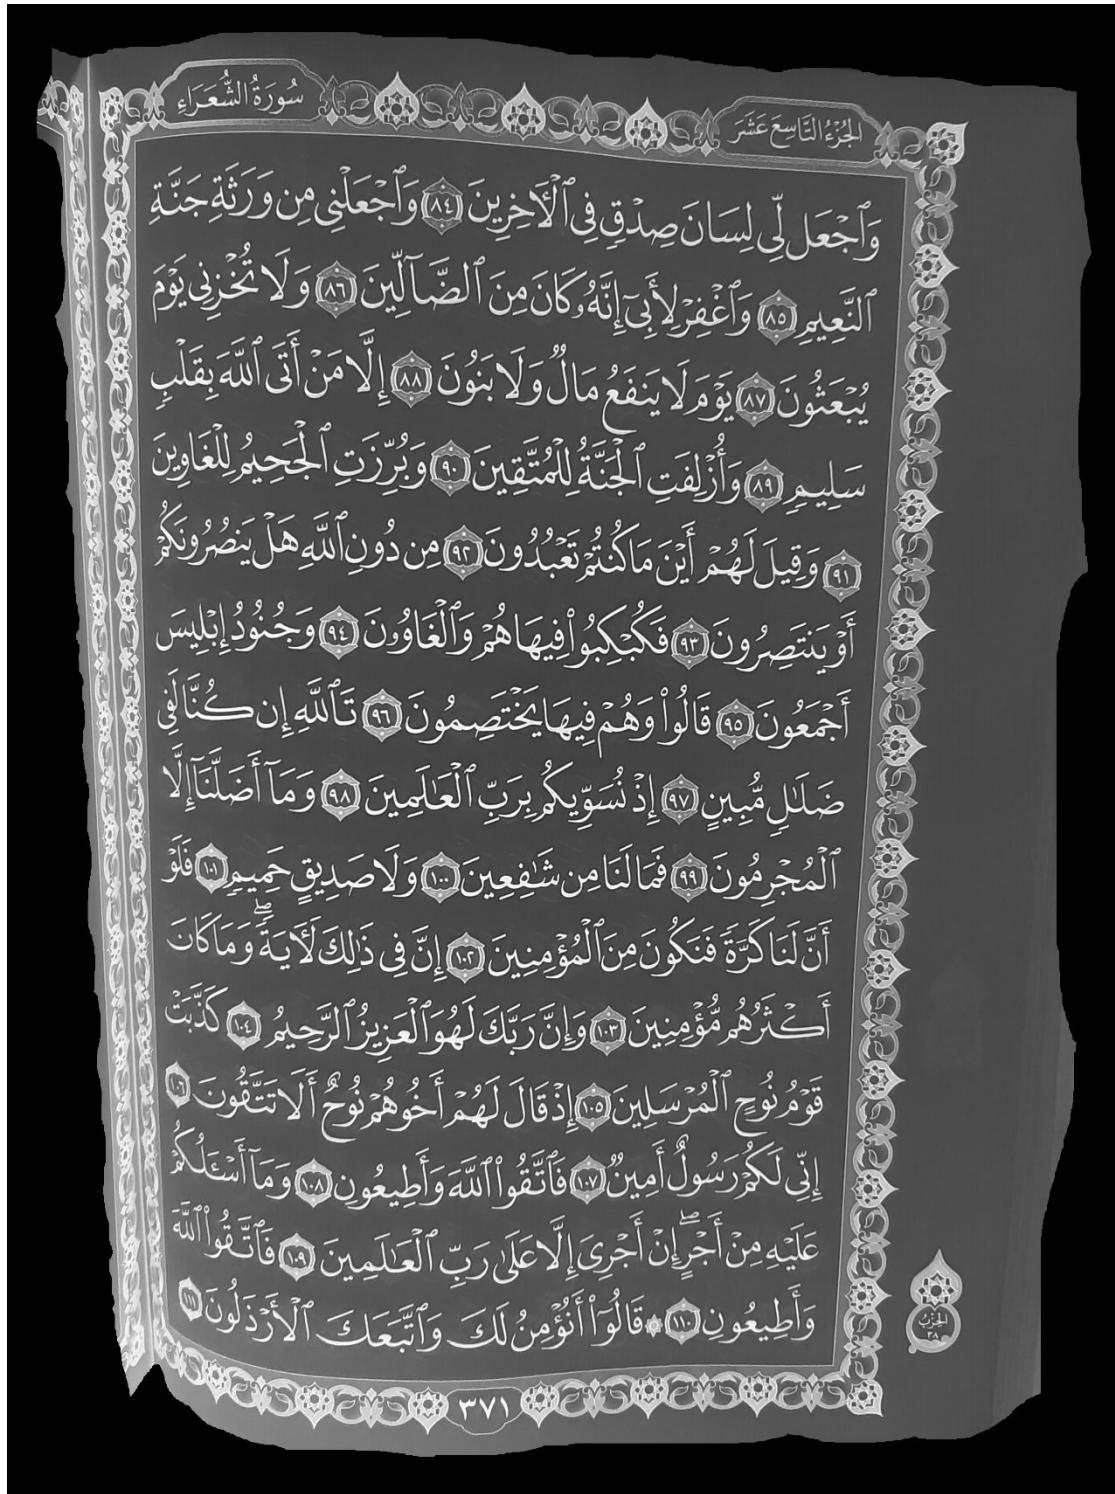 الجُزْءُ التَّاسِعَ عَشَرَ
سُورَةُ الشُّعَرَاءِ
وَٱجْعَل لِّى لِسَانَ صِدْقٍ فِى ٱلْأٓخِرِينَ ٨٤ وَٱجْعَلْنِى مِن وَرَثَةِ جَنَّةِ
ٱلنَّعِيمِ ٨٥ وَٱغْفِرْ لِأَبِىٓ إِنَّهُۥ كَانَ مِنَ ٱلضَّآلِّينَ ٨٦ وَلَا تُخْزِنِى يَوْمَ
يُبْعَثُونَ ٨٧ يَوْمَ لَا يَنفَعُ مَالٌ وَلَا بَنُونَ ٨٨ إِلَّا مَنْ أَتَى ٱللَّهَ بِقَلْبٍ
سَلِيمٍ ٨٩ وَأُزْلِفَتِ ٱلْجَنَّةُ لِلْمُتَّقِينَ ٩٠ وَبُرِّزَتِ ٱلْجَحِيمُ لِلْغَاوِينَ
٩١ وَقِيلَ لَهُمْ أَيْنَ مَا كُنتُمْ تَعْبُدُونَ ٩٢ مِن دُونِ ٱللَّهِ هَلْ يَنصُرُونَكُمْ
أَوْ يَنتَصِرُونَ ٩٣ فَكُبْكِبُوا۟ فِيهَا هُمْ وَٱلْغَاوُۥنَ ٩٤ وَجُنُودُ إِبْلِيسَ
أَجْمَعُونَ ٩٥ قَالُوا۟ وَهُمْ فِيهَا يَخْتَصِمُونَ ٩٦ تَٱللَّهِ إِن كُنَّا لَفِى
ضَلَٰلٍ مُّبِينٍ ٩٧ إِذْ نُسَوِّيكُم بِرَبِّ ٱلْعَٰلَمِينَ ٩٨ وَمَآ أَضَلَّنَآ إِلَّا
ٱلْمُجْرِمُونَ ٩٩ فَمَا لَنَا مِن شَٰفِعِينَ ١٠٠ وَلَا صَدِيقٍ حَمِيمٍ ١٠١ فَلَوْ
أَنَّ لَنَا كَرَّةً فَنَكُونَ مِنَ ٱلْمُؤْمِنِينَ ١٠٢ إِنَّ فِى ذَٰلِكَ لَأٓيَةً ۖ وَمَا كَانَ
أَكْثَرُهُم مُّؤْمِنِينَ ١٠٣ وَإِنَّ رَبَّكَ لَهُوَ ٱلْعَزِيزُ ٱلرَّحِيمُ ١٠٤ كَذَّبَتْ
قَوْمُ نُوحٍ ٱلْمُرْسَلِينَ ١٠٥ إِذْ قَالَ لَهُمْ أَخُوهُمْ نُوحٌ أَلَا تَتَّقُونَ ١٠٦
إِنِّى لَكُمْ رَسُولٌ أَمِينٌ ١٠٧ فَٱتَّقُوا۟ ٱللَّهَ وَأَطِيعُونِ ١٠٨ وَمَآ أَسْـَٔلُكُمْ
عَلَيْهِ مِنْ أَجْرٍ ۖ إِنْ أَجْرِىَ إِلَّا عَلَىٰ رَبِّ ٱلْعَٰلَمِينَ ١٠٩ فَٱتَّقُوا۟ ٱللَّهَ
وَأَطِيعُونِ ١١٠ ۞ قَالُوٓا۟ أَنُؤْمِنُ لَكَ وَٱتَّبَعَكَ ٱلْأَرْذَلُونَ ١١١
الحِزْبُ
٣٨
٣٧١